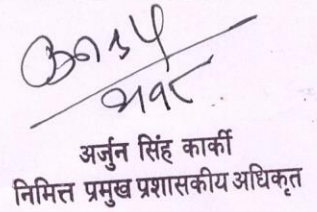 अर्जुन सिंह कार्की
निमित्त प्रमुख प्रशासकीय अधिकृत